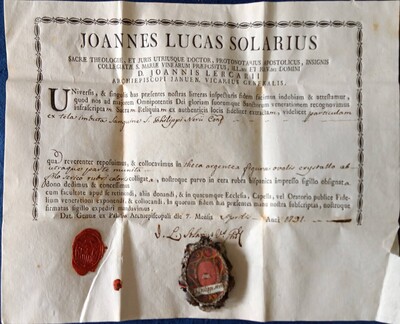 JOANNES LUCAS SOLARIUS
SACRÆ THEOLOGIÆ, ET JURIS UTRIUSQUE DOCTOR, PROTONOTARIUS APOSTOLICUS, INSIGNIS
COLLEGIATÆ S. MARIÆ VINEARUM PRÆPOSITUS, ILLMI ET REVMI DOMINI
D. JOANNIS LERCARII
ARCHIEPISCOPI JANUEN. VICARIUS GENERALIS.
Universis, & singulis has præsentes nostras litteras inspecturis fidem facimus indubiam & attestamur,
quod nos ad majorem Omnipotentis Dei gloriam suorumque Sanctorum venerationem recognovimus
infrascriptam Sacram Reliquiam ex authenticis locis fideliter extractam, videlicet particulam
ex tela imbuta sanguine S. Philippi Nerii Conf
quam reverenter reposuimus, & collocavimus in theca argentea figuræ ovalis crystallo ab
utraque parte munita
filo serico rubri coloris colligat, nostroque parvo in cera rubra hispanica impresso sigillo obsignat
dono dedimus & concessimus
cum facultate apud se retinendi, aliis donandi, & in quacumque Ecclesia, Capella, vel Oratorio publicæ Fide-
lium venerationi exponendi, & collocandi. In quorum fidem has præsentes manu nostra subscriptas, nostroque
firmatas sigillo expediri mandavimus.
Dat. Genuæ ex Palatio Archiepiscopali die 7 Mensis Anni